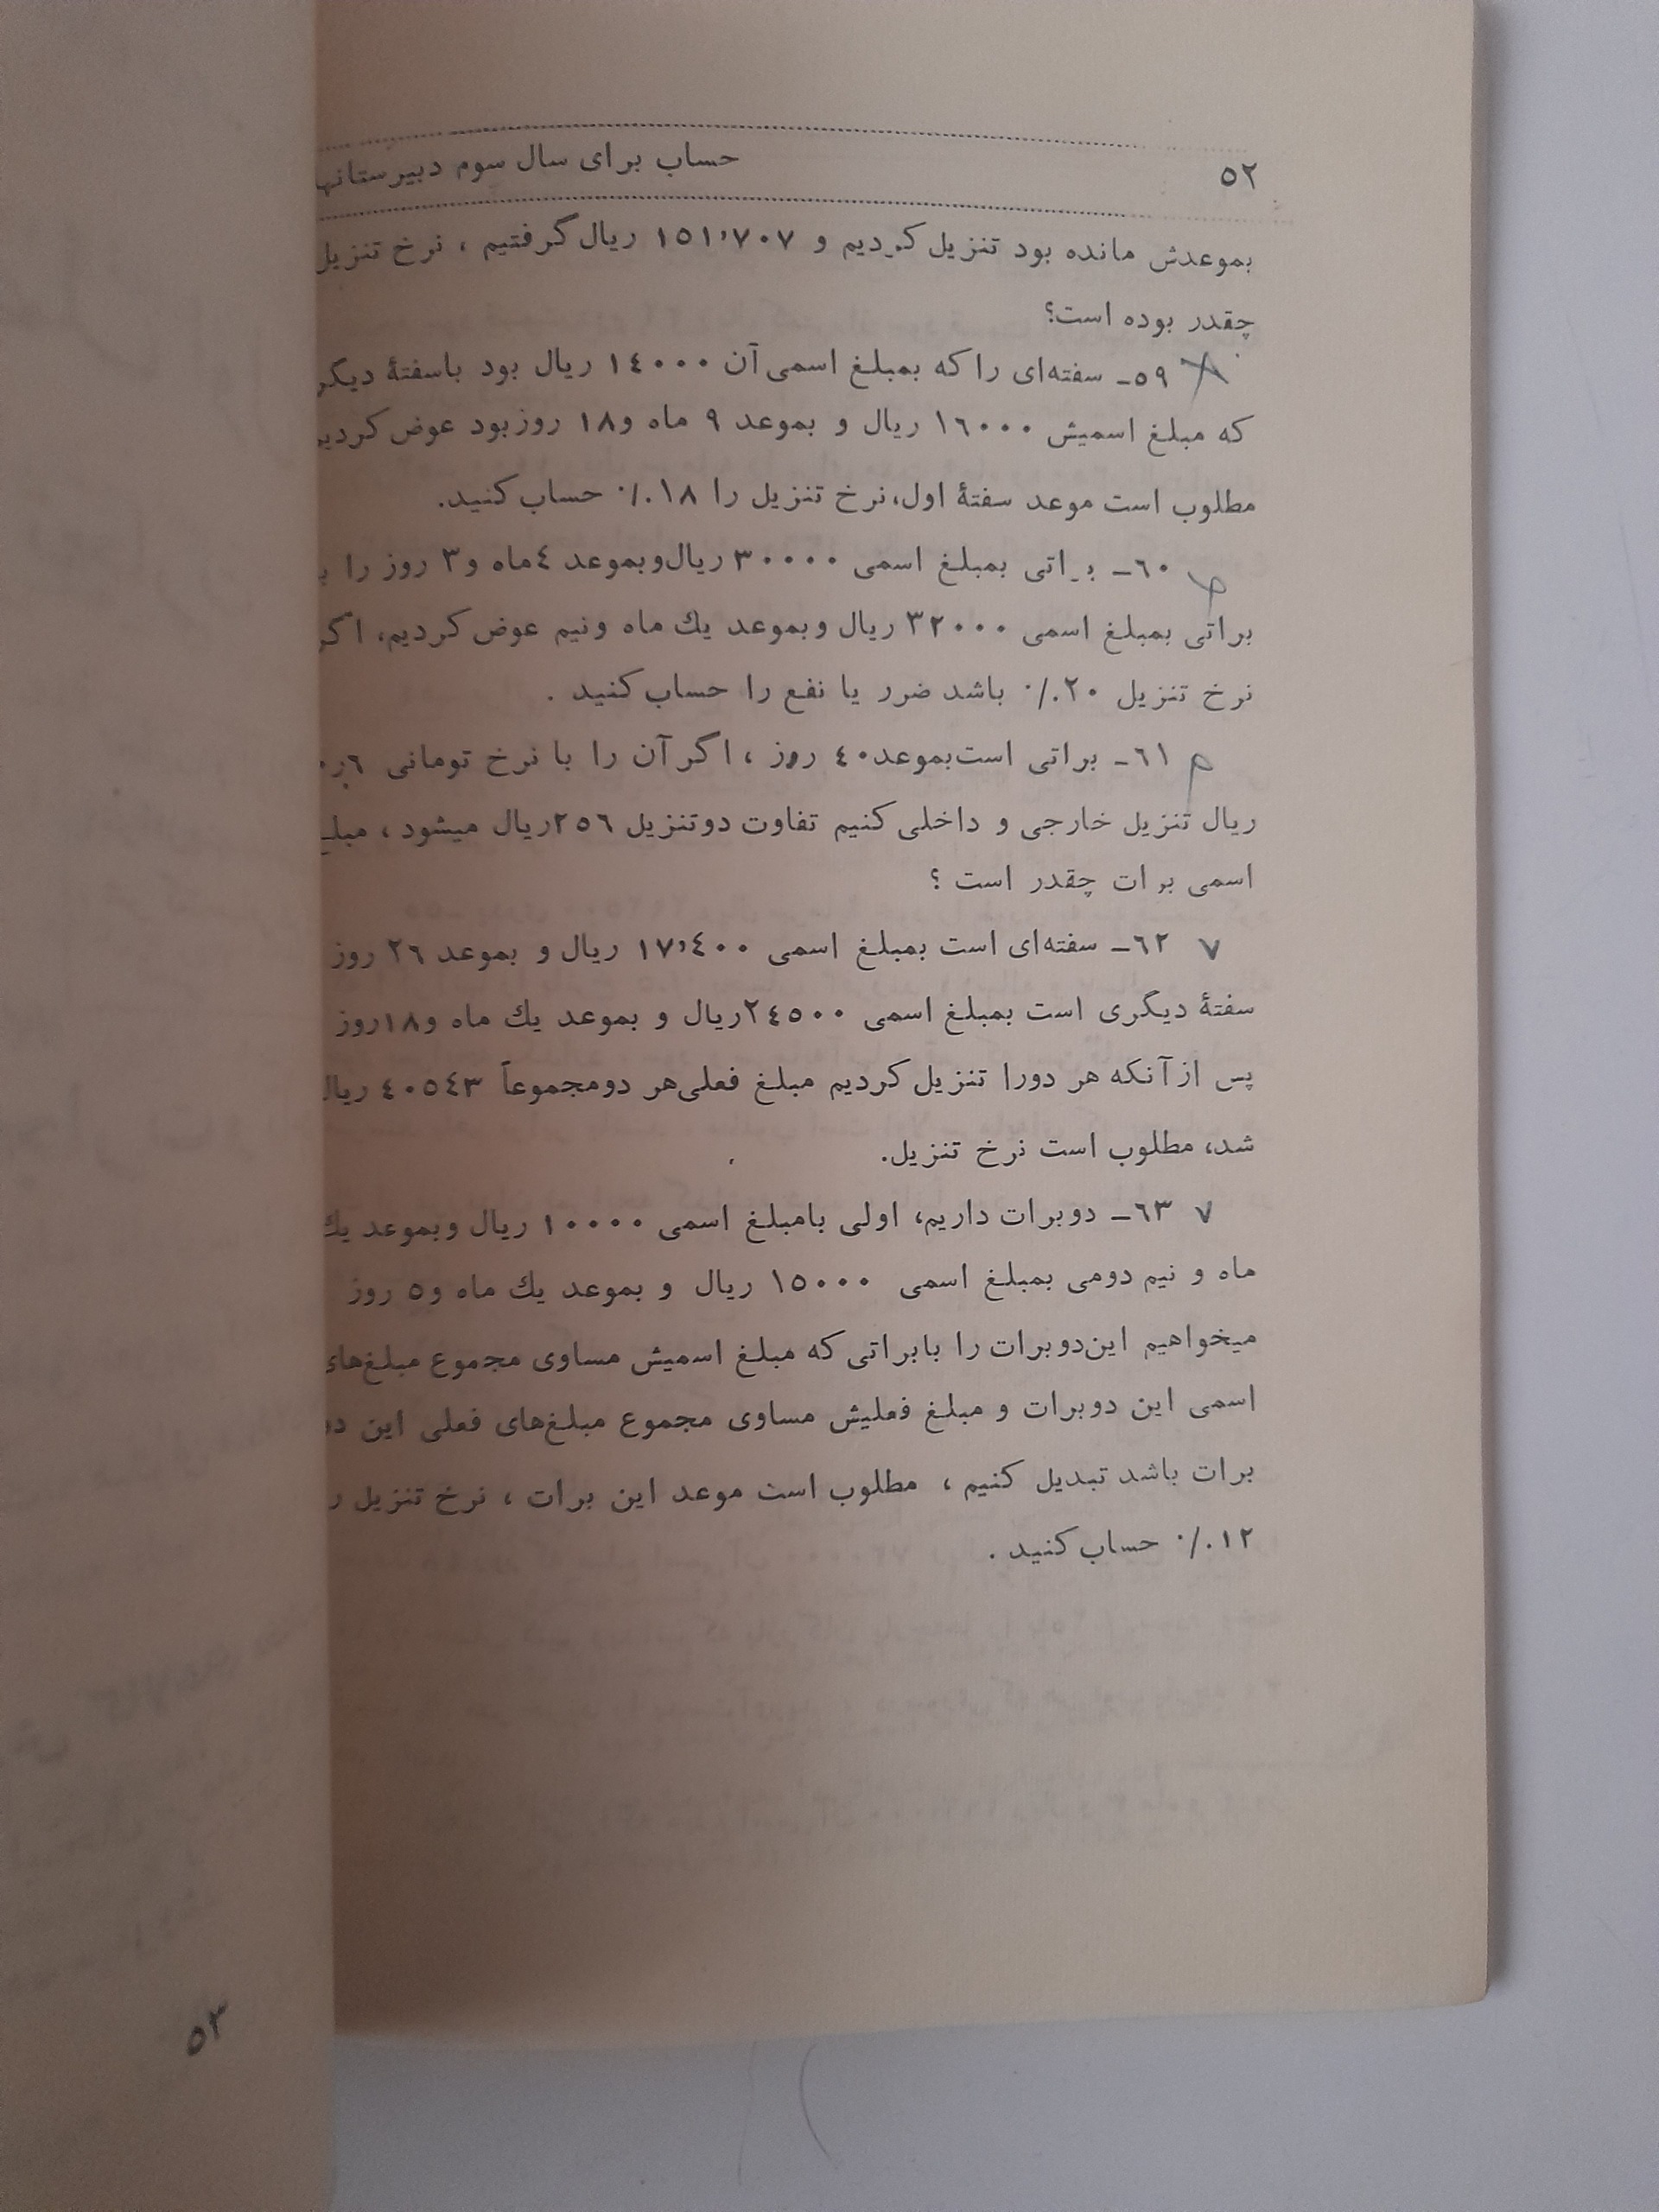 ۵۲ حساب برای سال سوم دبیرستانها
بموعدش مانده بود تنزیل کردیم و ۱۵۱٬۷۰۷ ریال گرفتیم ، نرخ تنزیل
چقدر بوده است؟
۵۹ـ سفته‌ای را که بمبلغ اسمی آن ۱۴۰۰۰ ریال بود با سفتهٔ دیگر
که مبلغ اسمیش ۱۶۰۰۰ ریال و بموعد ۹ ماه و ۱۸ روز بود عوض کردیم
مطلوب است موعد سفتهٔ اول، نرخ تنزیل را ۱۸٪ حساب کنید.
۶۰ـ براتی بمبلغ اسمی ۳۰۰۰۰ ریال و بموعد ۴ ماه و ۳ روز را
براتی بمبلغ اسمی ۳۲۰۰۰ ریال و بموعد یك ماه و نیم عوض کردیم، اگر
نرخ تنزیل ۲۰٪ باشد ضرر یا نفع را حساب کنید .
۶۱ـ براتی است بموعد ۴۰ روز ، اگر آن را با نرخ تومانی
ریال تنزیل خارجی و داخلی کنیم تفاوت دو تنزیل ۲۵۶ ریال میشود ، مبلغ
اسمی برات چقدر است ؟
۷ ۶۲ـ سفته‌ای است بمبلغ اسمی ۱۷٬۴۰۰ ریال و بموعد ۲۶ روز
سفتهٔ دیگری است بمبلغ اسمی ۲۴۵۰۰ ریال و بموعد یك ماه و ۱۸ روز
پس از آنکه هر دو را تنزیل کردیم مبلغ فعلی هر دو مجموعاً ۴۰۵۴۳ ریال
شد، مطلوب است نرخ تنزیل.
۷ ۶۳ـ دو برات داریم، اولی با مبلغ اسمی ۱۰۰۰۰ ریال و بموعد یك
ماه و نیم دومی بمبلغ اسمی ۱۵۰۰۰ ریال و بموعد یك ماه و ۵ روز
میخواهیم این دو برات را با براتی که مبلغ اسمیش مساوی مجموع مبلغ‌های
اسمی این دو برات و مبلغ فعلیش مساوی مجموع مبلغ‌های فعلی این دو
برات باشد تبدیل کنیم ، مطلوب است موعد این برات ، نرخ تنزیل
۱۲٪ حساب کنید .
۵۳